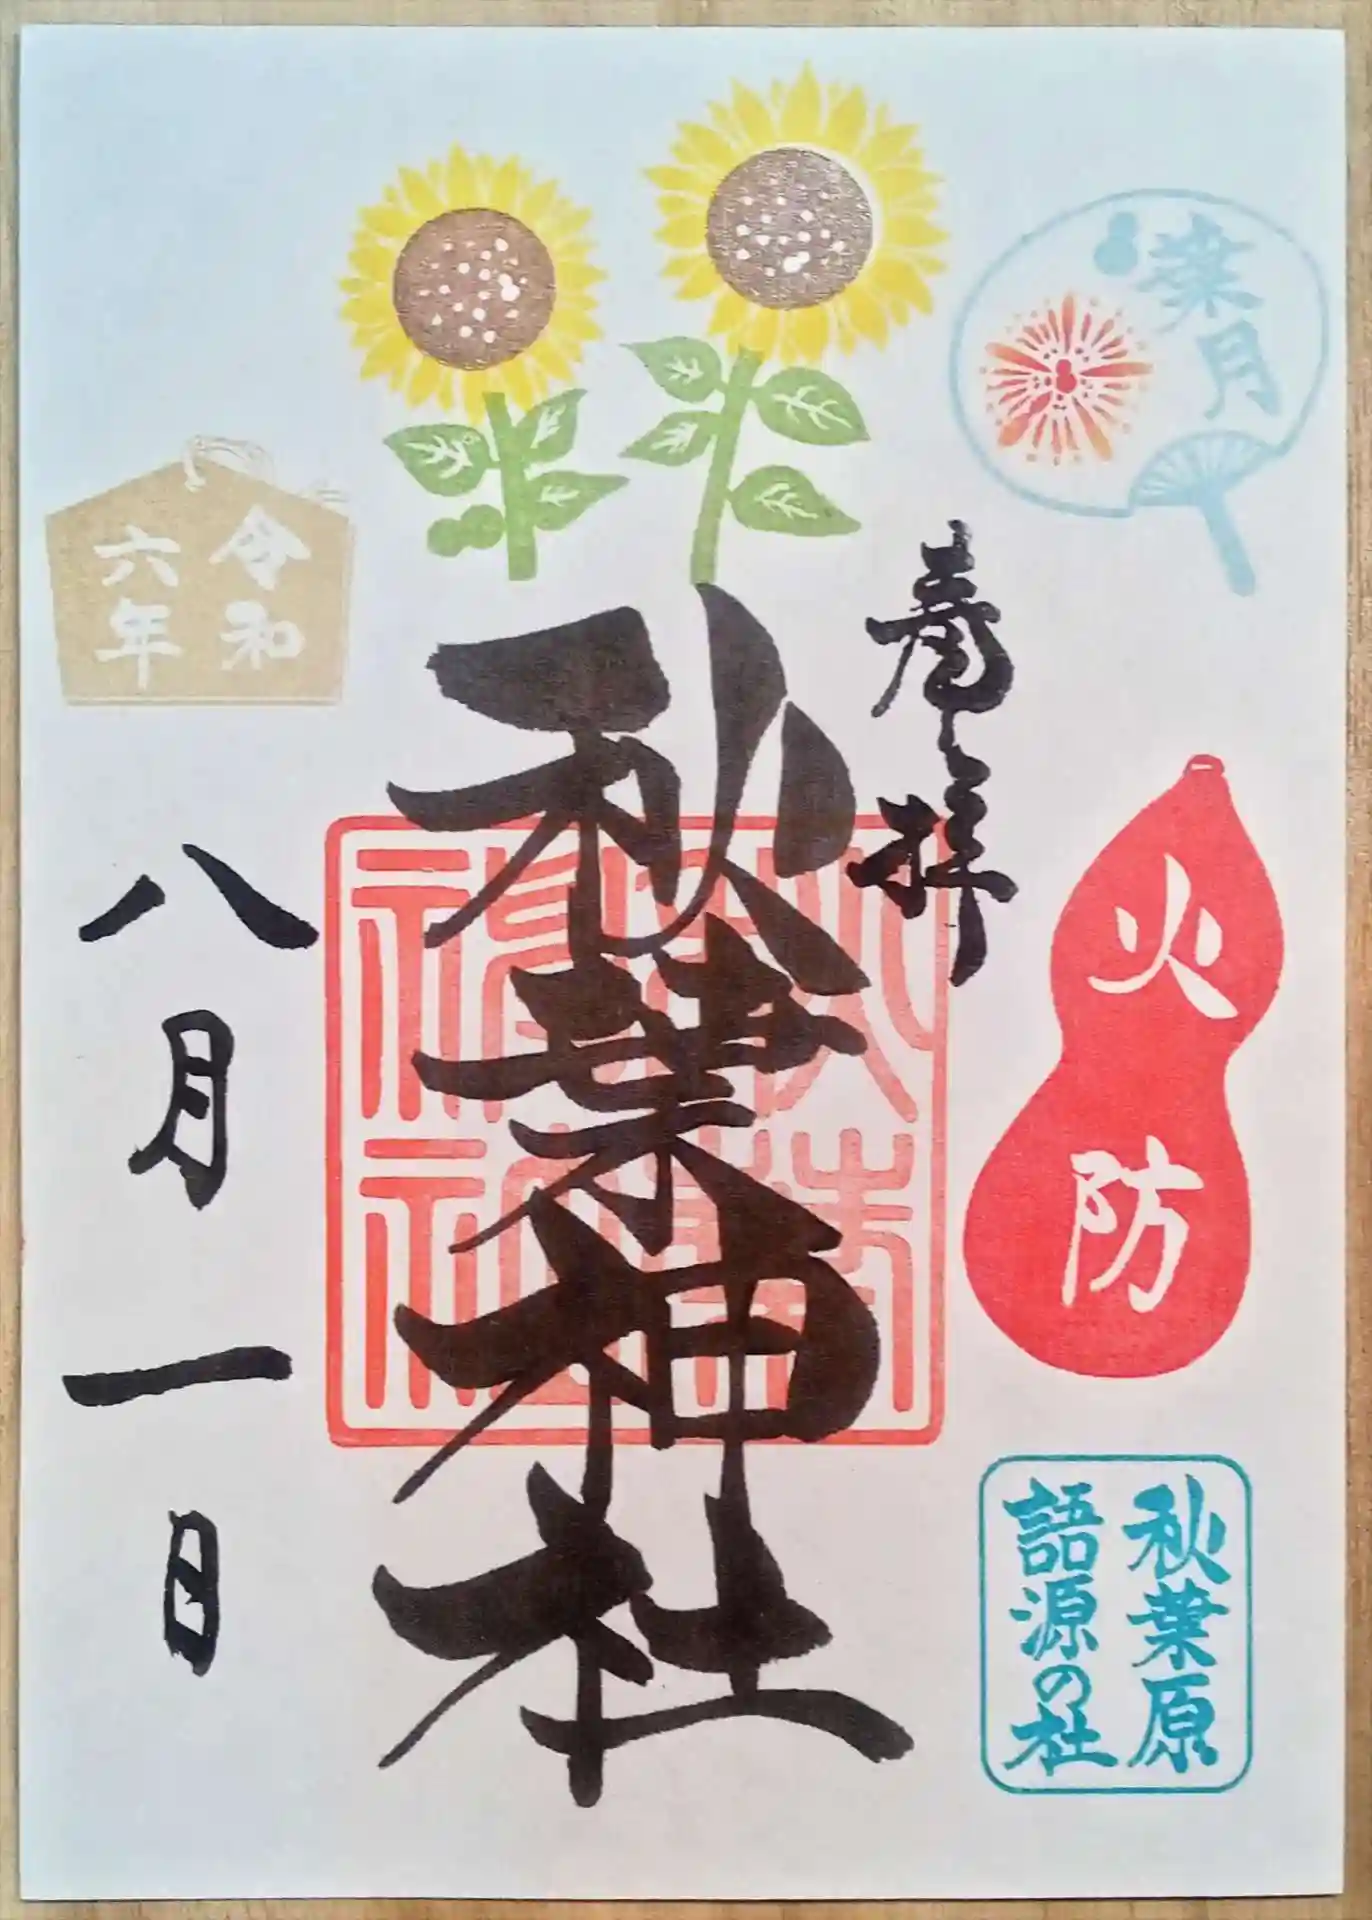 葉月
奉拝
火防
秋葉原
語源の社
秋葉神社
秋葉
神社
令和
六年
八月一日